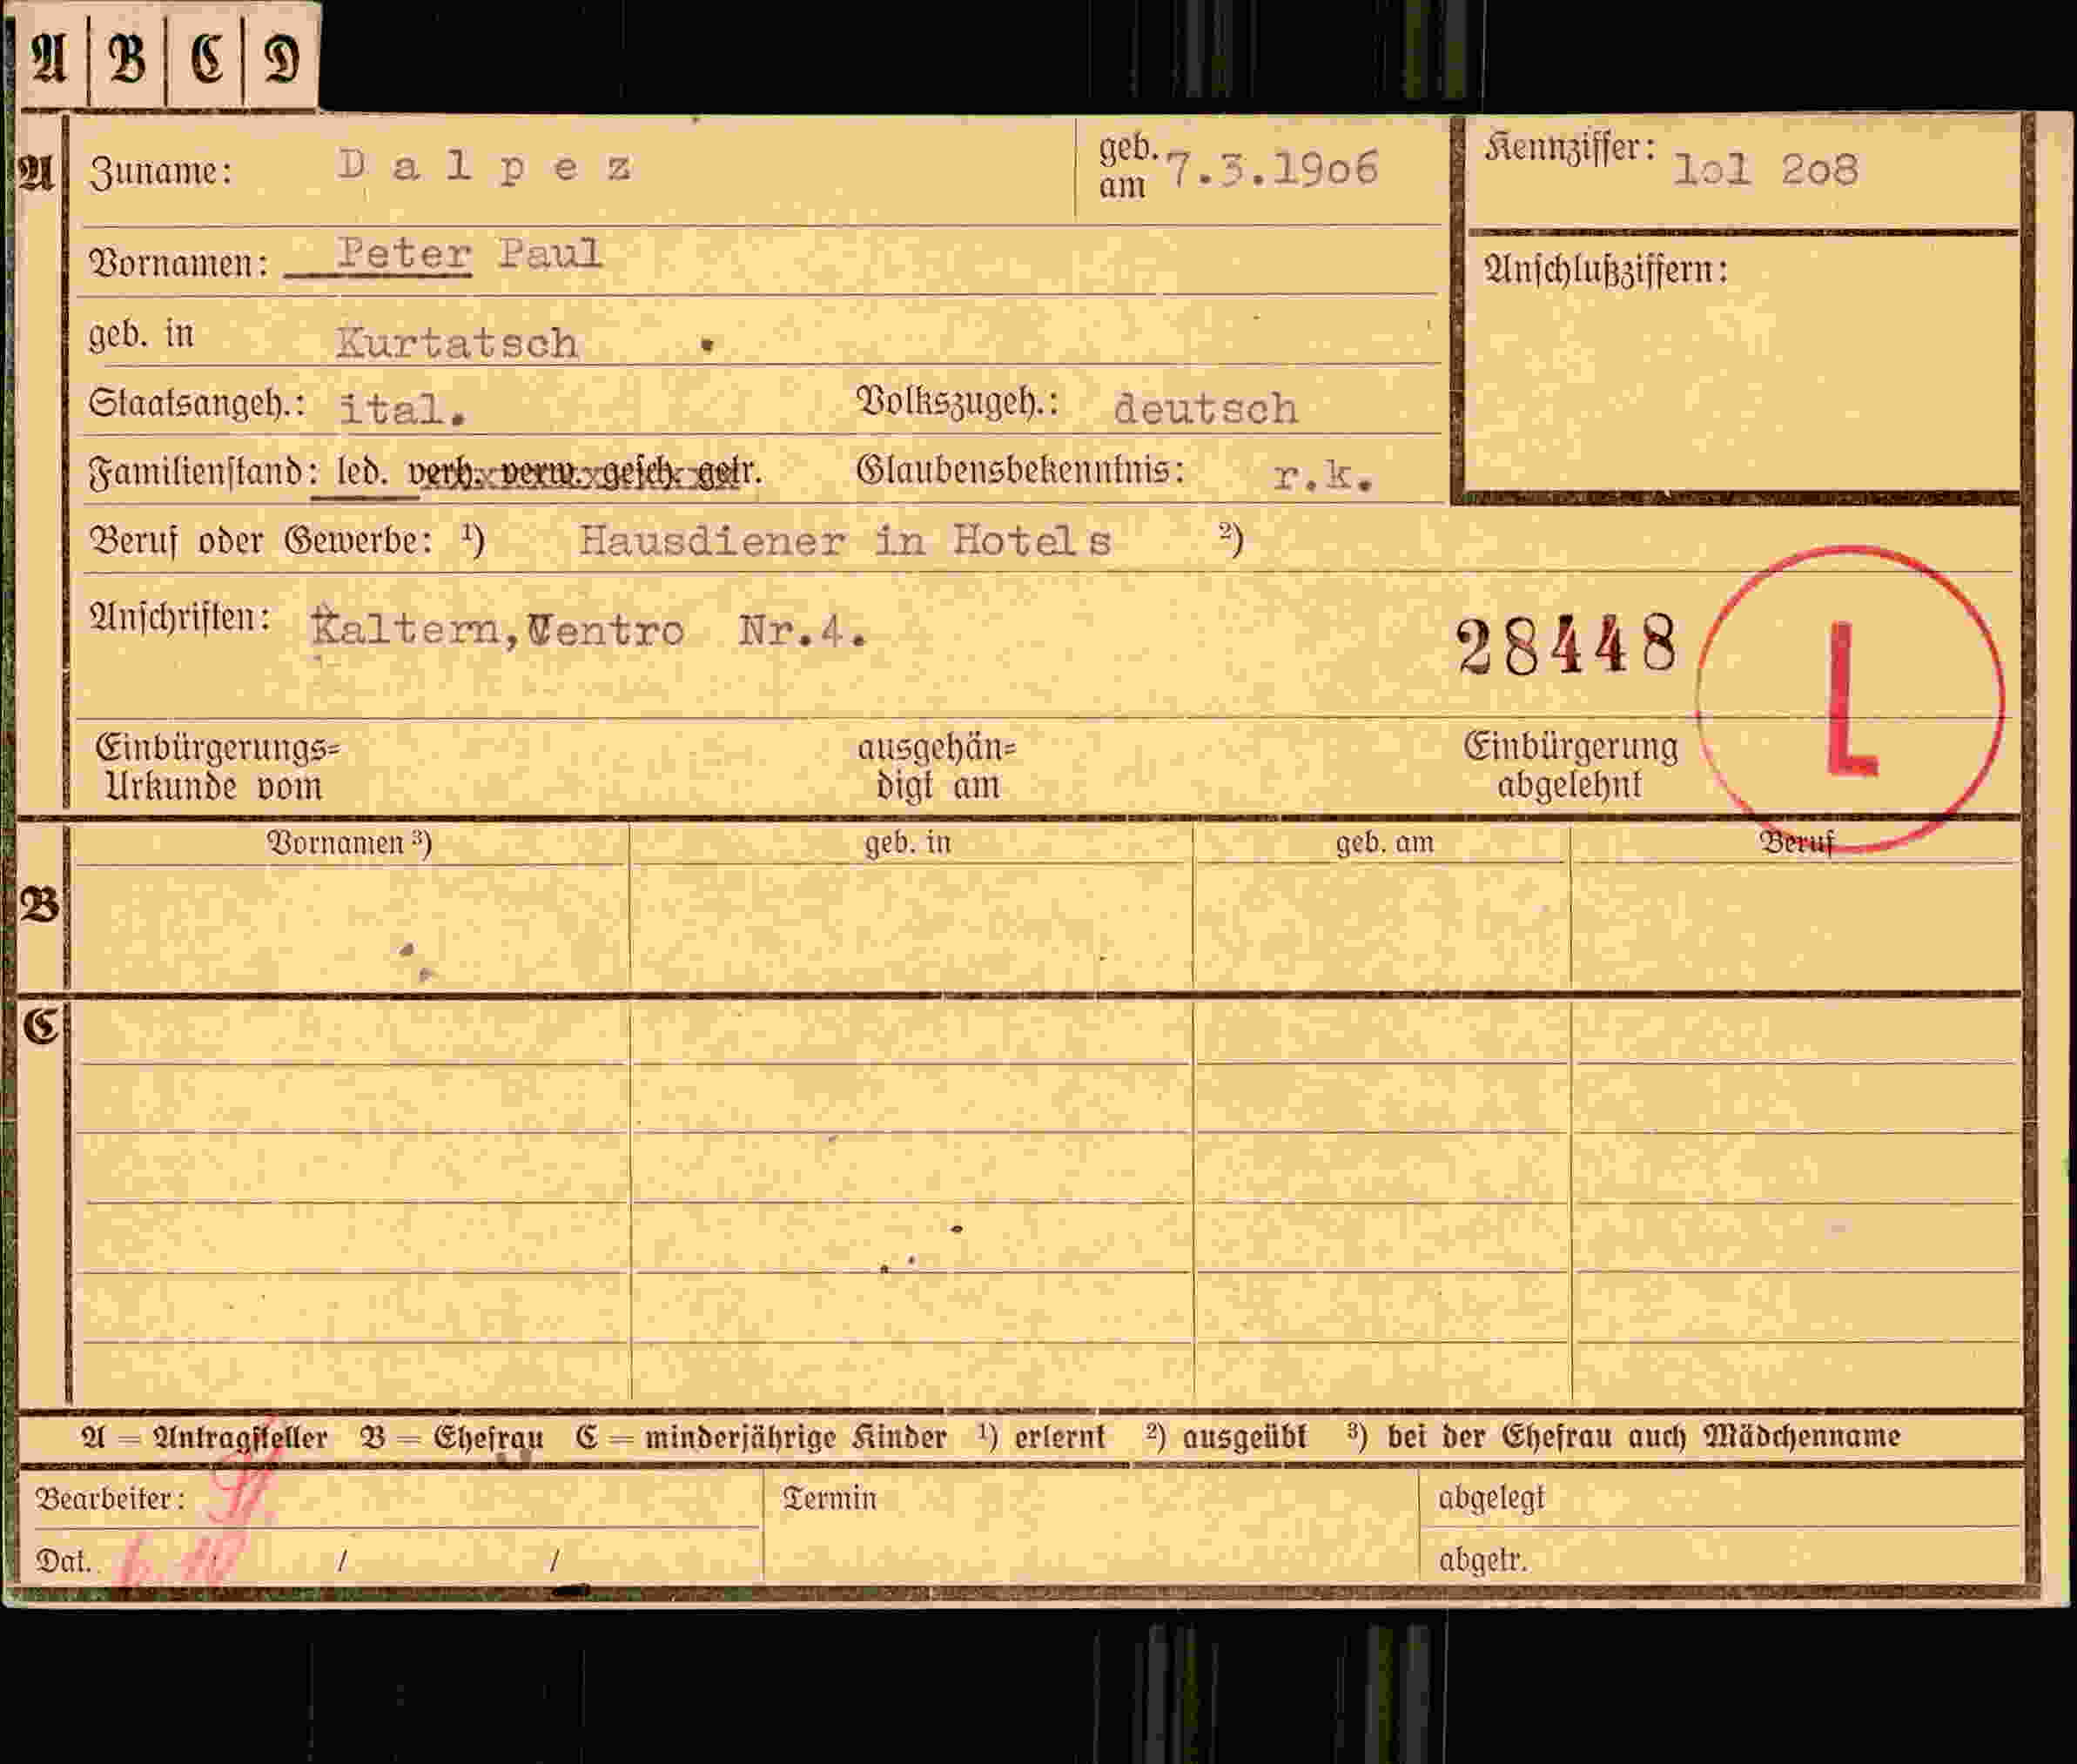 A B C D
A Zuname: Dalpez geb. am 7.3.1906 Kennziffer: lol 208
Vornamen: Peter Paul
Anschlußziffern:
geb. in Kurtatsch
Staatsangeh.: ital. Volkszugeh.: deutsch
Familienstand: led. verh. verw. gesch. getr. Glaubensbekenntnis: r.k.
Beruf oder Gewerbe: ¹) Hausdiener in Hotels ²)
Anschriften: Kaltern, Nr.4. 28448 L
Einbürgerungs= ausgehän= Einbürgerung
Urkunde vom digt am abgelehnt
Vornamen ³) geb. in geb. am Beruf
B
C
A = Antragsteller B = Ehefrau C = minderjährige Kinder ¹) erlernt ²) ausgeübt ³) bei der Ehefrau auch Mädchenname
Bearbeiter: Termin abgelegt
Dat. / / abgetr.